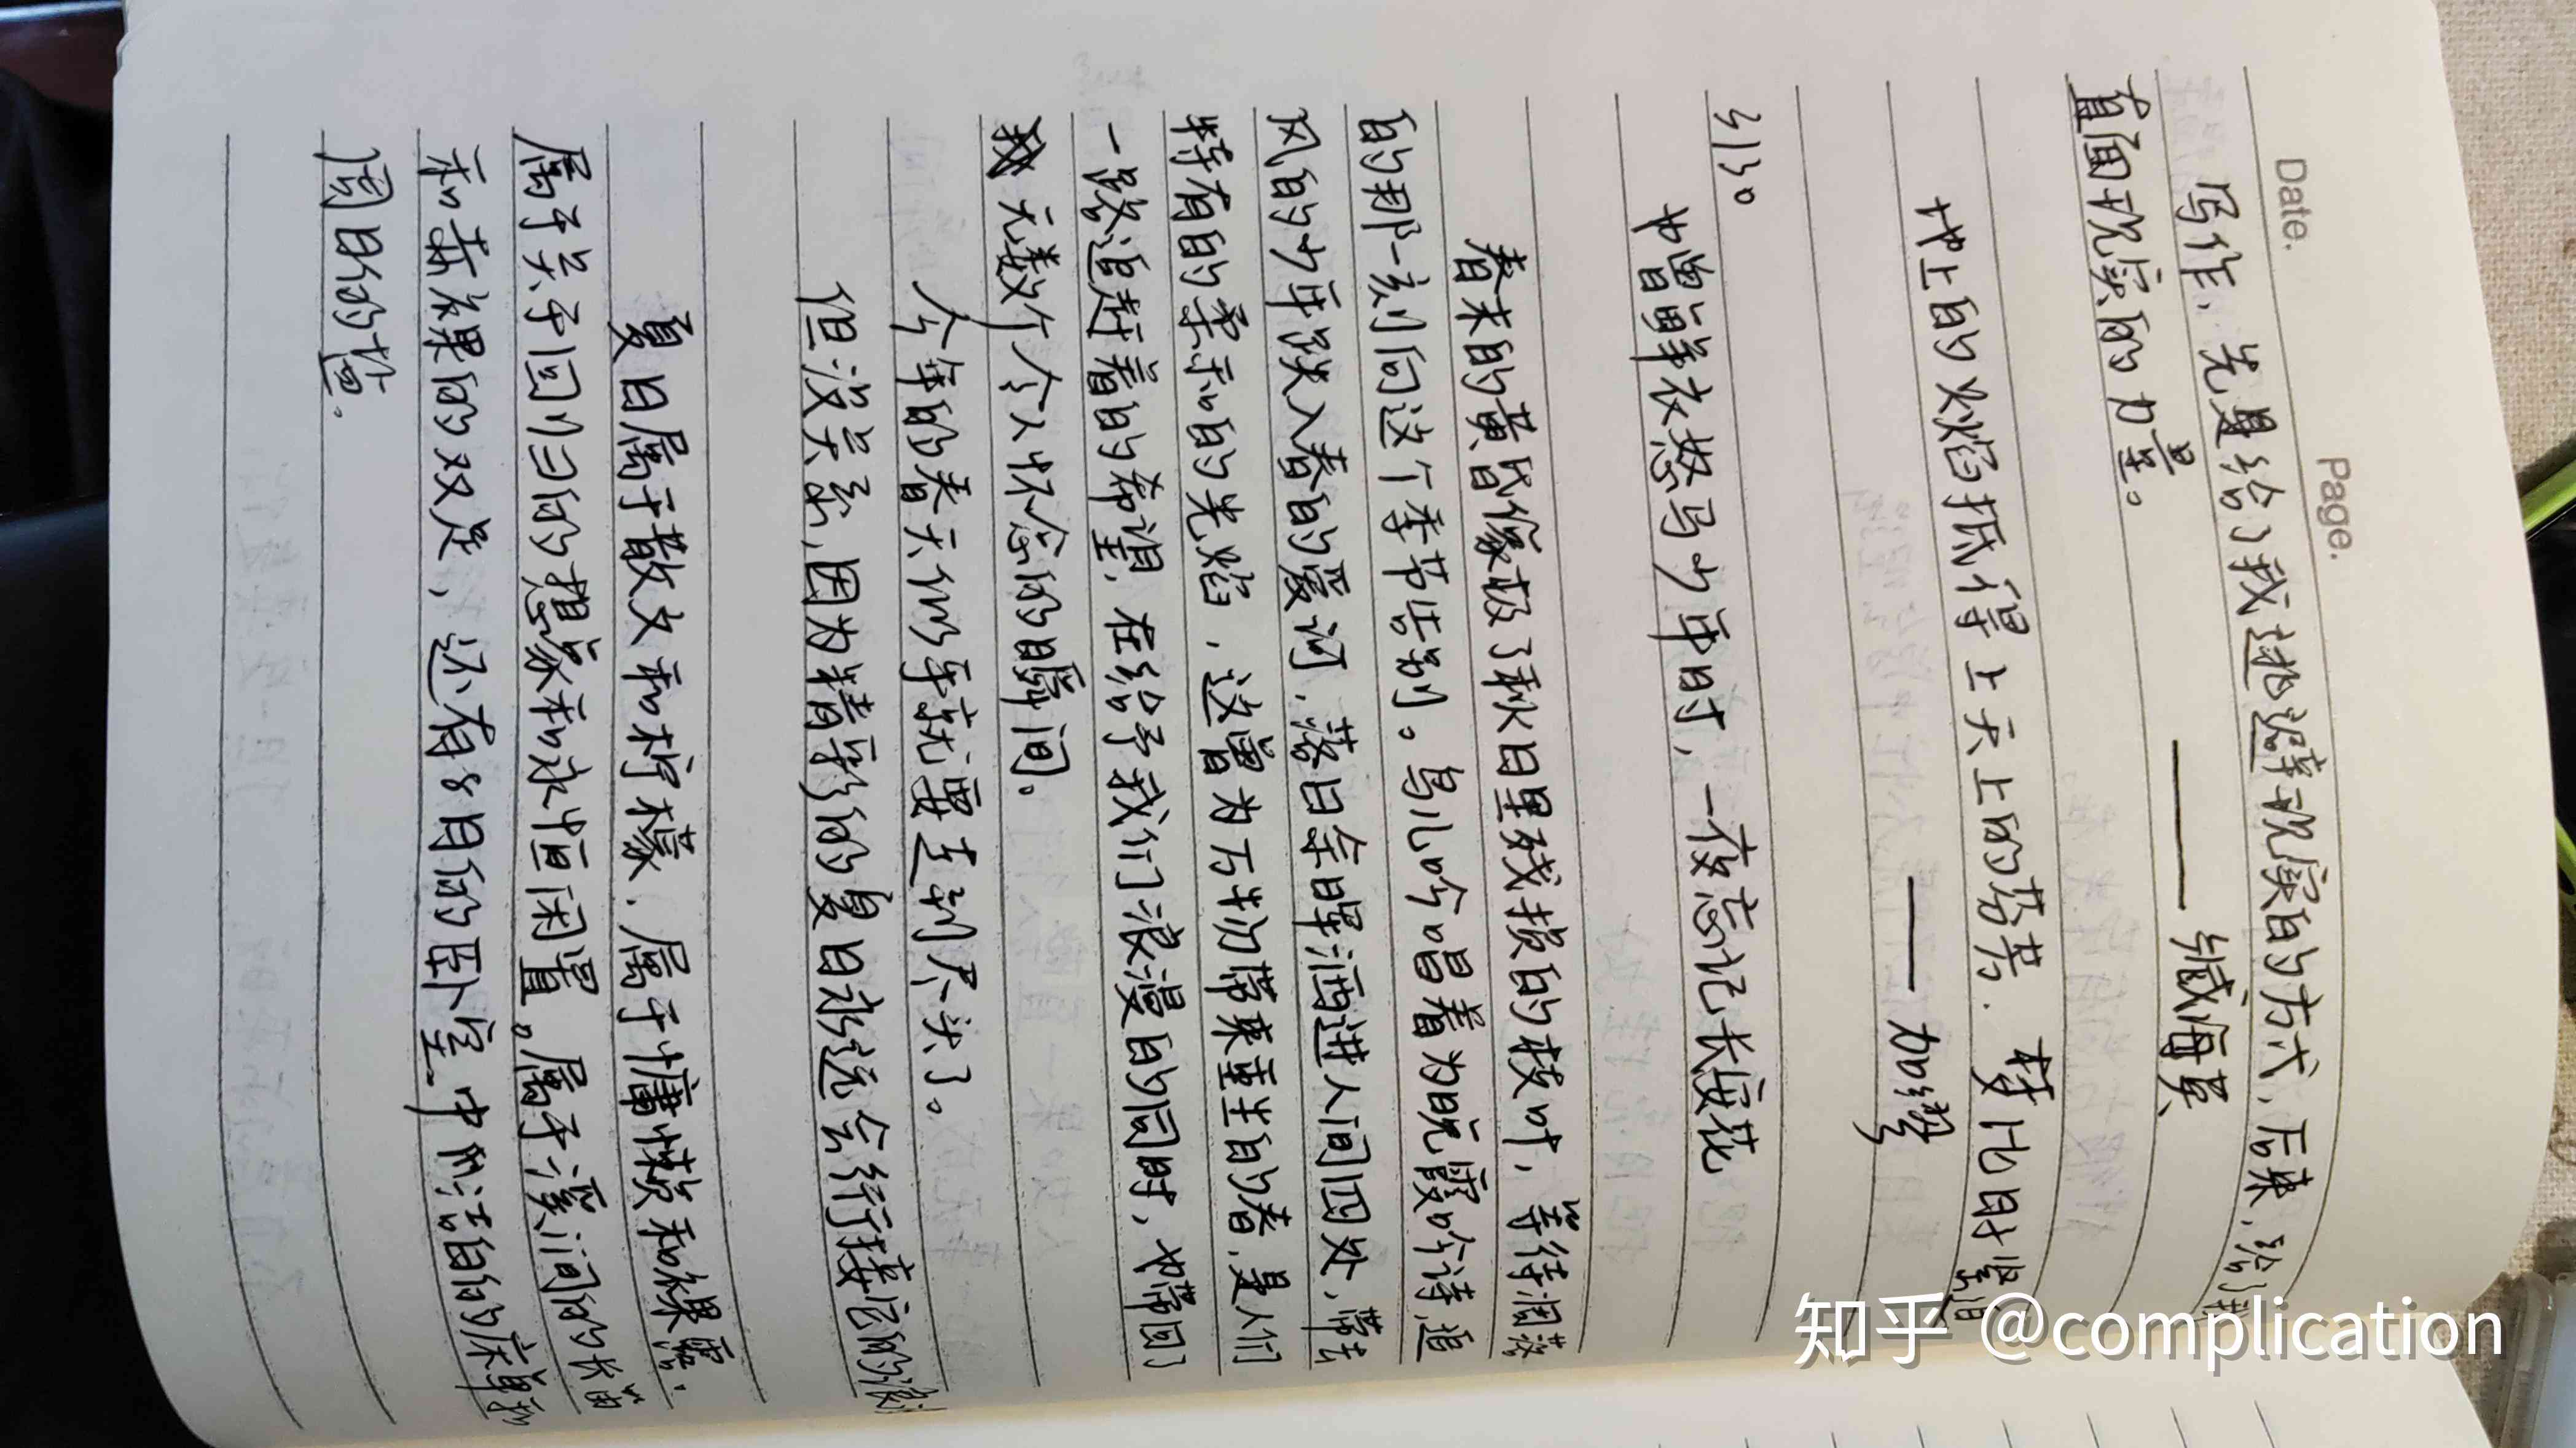 Date.
Page.
写作、先是给了我逃避现实的方式,后来,给了我
直面现实的力量。
——臧海英
地上的火焰抵得上天上的劳苦.梦比时坚
——加缪
5130
也曾鲜衣怒马少年时,一夜忘记长安花
春末的黄昏像极了秋日里残损的枝叶,等待凋落
的那一刻向这个季节告别。鸟儿吟唱着为晚霞吟诗,追
风的少年跌入春的爱河.落日余晖洒进人间四处,带去
特有的柔和的光焰,这曾为万物带来重生的春,是人们
一路追赶着的希望,在给予我们浪漫的同时,也带回了
无数个令人怀念的瞬间。
今年的春天似乎就要走到尽头了。
但没关系,因为精彩的夏日永远会衔接它的浪漫
夏日属于散文和柠檬、属于慵懒和裸露.
属于关于回归的想象和永恒闲置。属于溪间的长笛
和赤裸的双足,还有8月份的卧室中那洁白的床单和
周日的信.
知乎 @complication